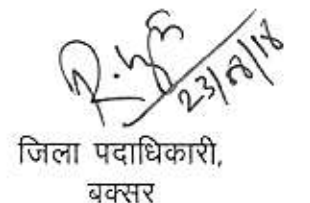 23/8/18
जिला पदाधिकारी,
बक्सर